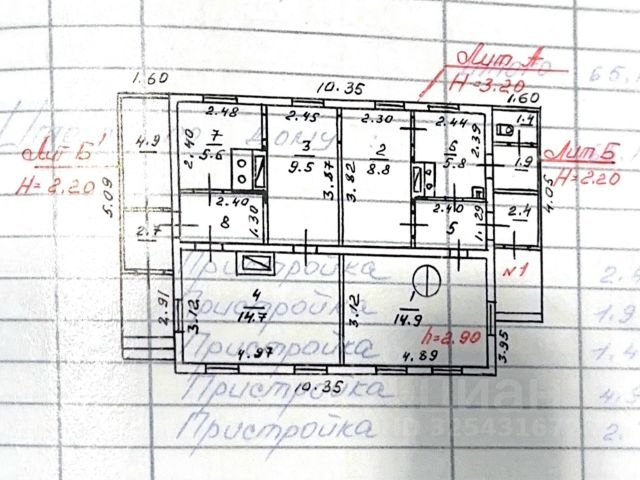 Лит А
Н=3.20
65.
1.60
10.35
1.60
2.48
2.45
2.30
2.44
2.39
1.4
дому
4.9
7
5.6
2.40
3
9.5
3.87
2
8.8
3.82
6
5.8
1.9
Лит Б'
Н=2.20
Лит Б
Н=2.20
5.09
4.05
2.40
8
1.30
2.40
5
1.29
2.4
2.7
№1
Пристройка
2.91
3.12
4
14.7
3.12
1
14.9
Пристройка
1.9
h=2.90
3.95
Пристройка
1.4
4.97
4.89
10.35
Пристройка
4.9
Пристройка
2.
циан